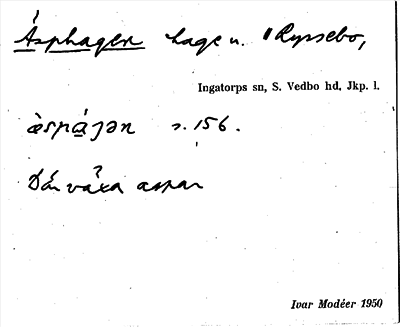 Ásphagen hage u. Rypsebo,
Ingatorps sn, S. Vedbo hd, Jkp. l.
s. 156.
Där växa aspar
Ivar Modéer 1950